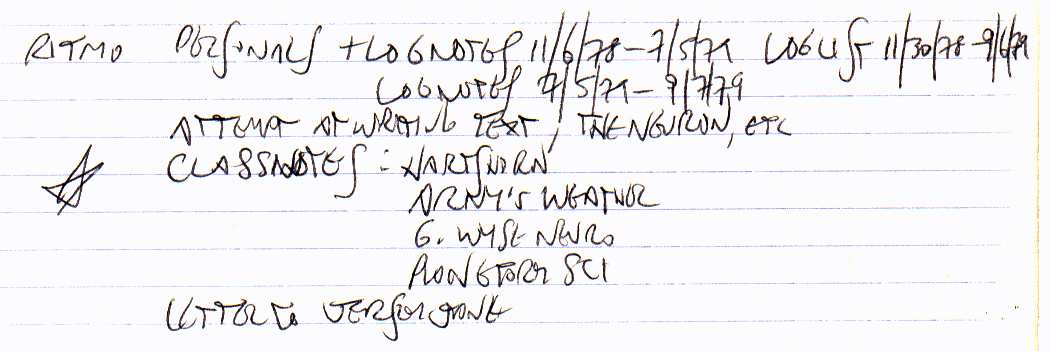 RITMO PERSONALS + LOGNOTES 11/6/78 - 7/5/79 LOGLIST 11/30/78 - 9/6/79
LOGNOTES 7/5/79 - 9/7/79
ATTEMPT AT WRITING TEXT, THE NEURON, ETC
CLASSNOTES : HARTSHORN
ARNY'S WEATHER
G. WYSE NEURO
PLANETARY SCI
LETTER TO